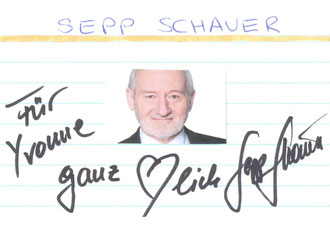 SEPP SCHAUER
Für
Yvonne
ganz ♡lich Sepp Schauer